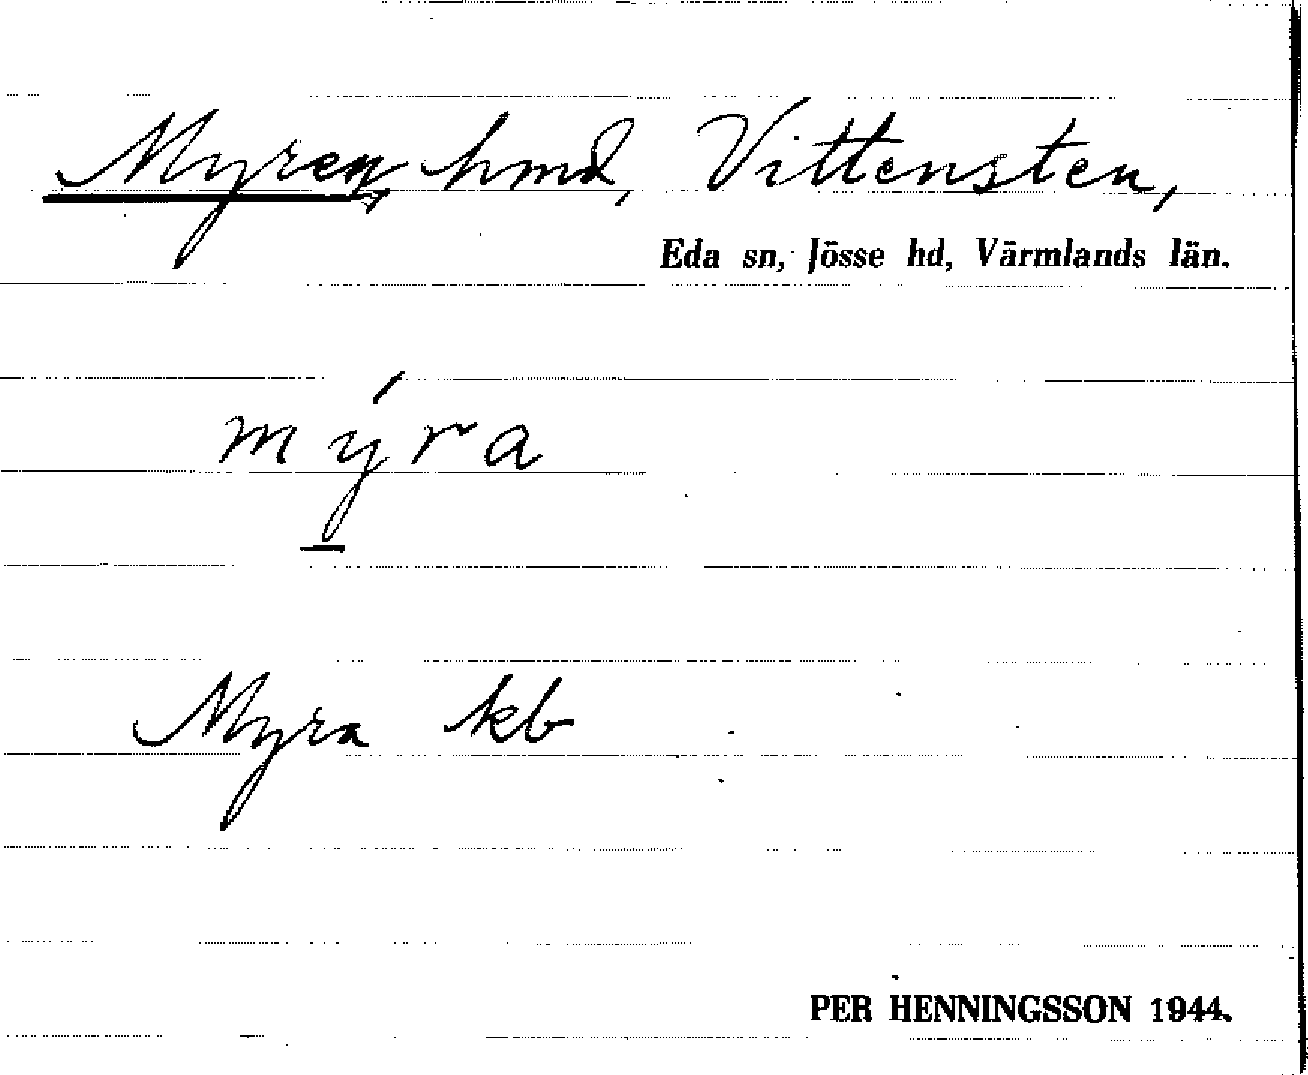 Myren, hmd, Vittensten,
Eda sn, Jösse hd, Värmlands län.
mýra
Myra kb
PER HENNINGSSON 1944.